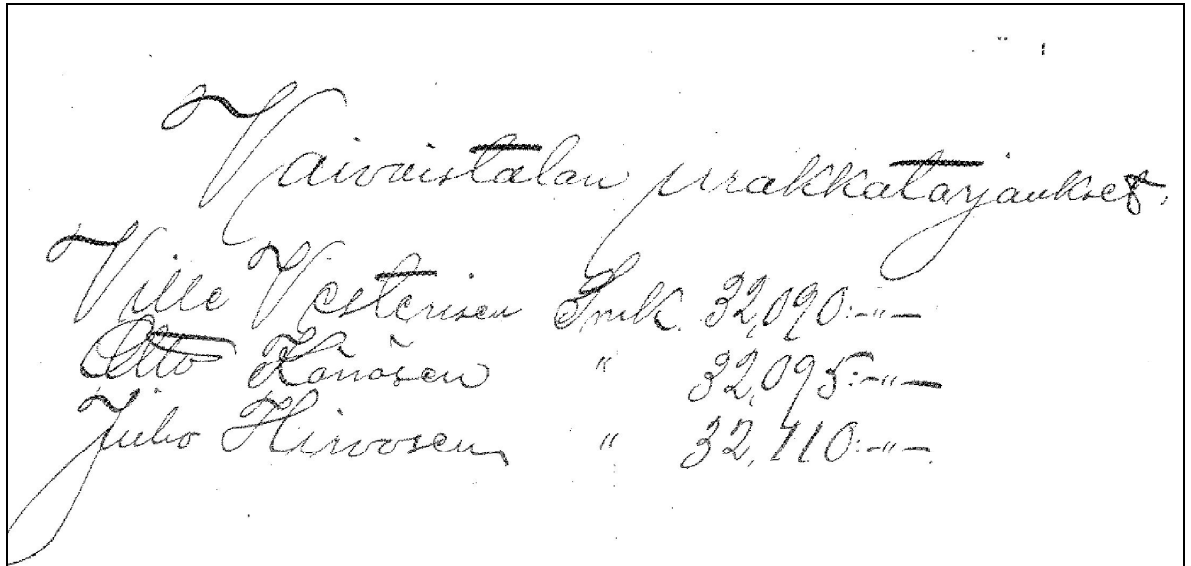 Vaivaistalon urakkatarjoukset.
Ville Vesterisen Smk. 32,090:-"-
Otto Könösen " 32,095:-"-
Juho Hirvosen " 32,110:-"-